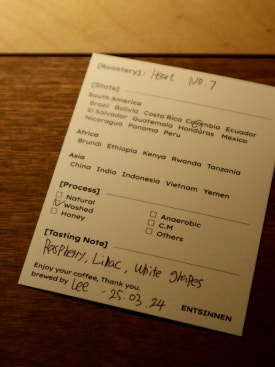 [Roastery]: Heart No. 7
[State]
South America
Brazil Bolivia Costa Rica Colombia Ecuador
El Salvador Guatemala Honduras Mexico
Nicaragua Panama Peru
Africa
Brundi Ethiopia Kenya Rwanda Tanzania
Asia
China India Indonesia Vietnam Yemen
[Process]
Natural
Washed
Honey
Anaerobic
C.M
Others
[Tasting Note]
Raspberry, Lilac, White grapes
Enjoy your coffee, Thank you.
brewed by Lee - 25. 03. 24
ENTSINNEN